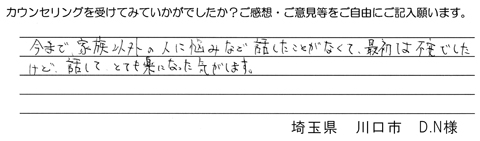 カウンセリングを受けてみていかがでしたか？ご感想・ご意見等をご自由にご記入願います。
今まで、家族以外の人に悩みなど話したことがなくて、最初は不安でした
けど、話して、とても楽になった気がします。
埼玉県　川口市　D.N様